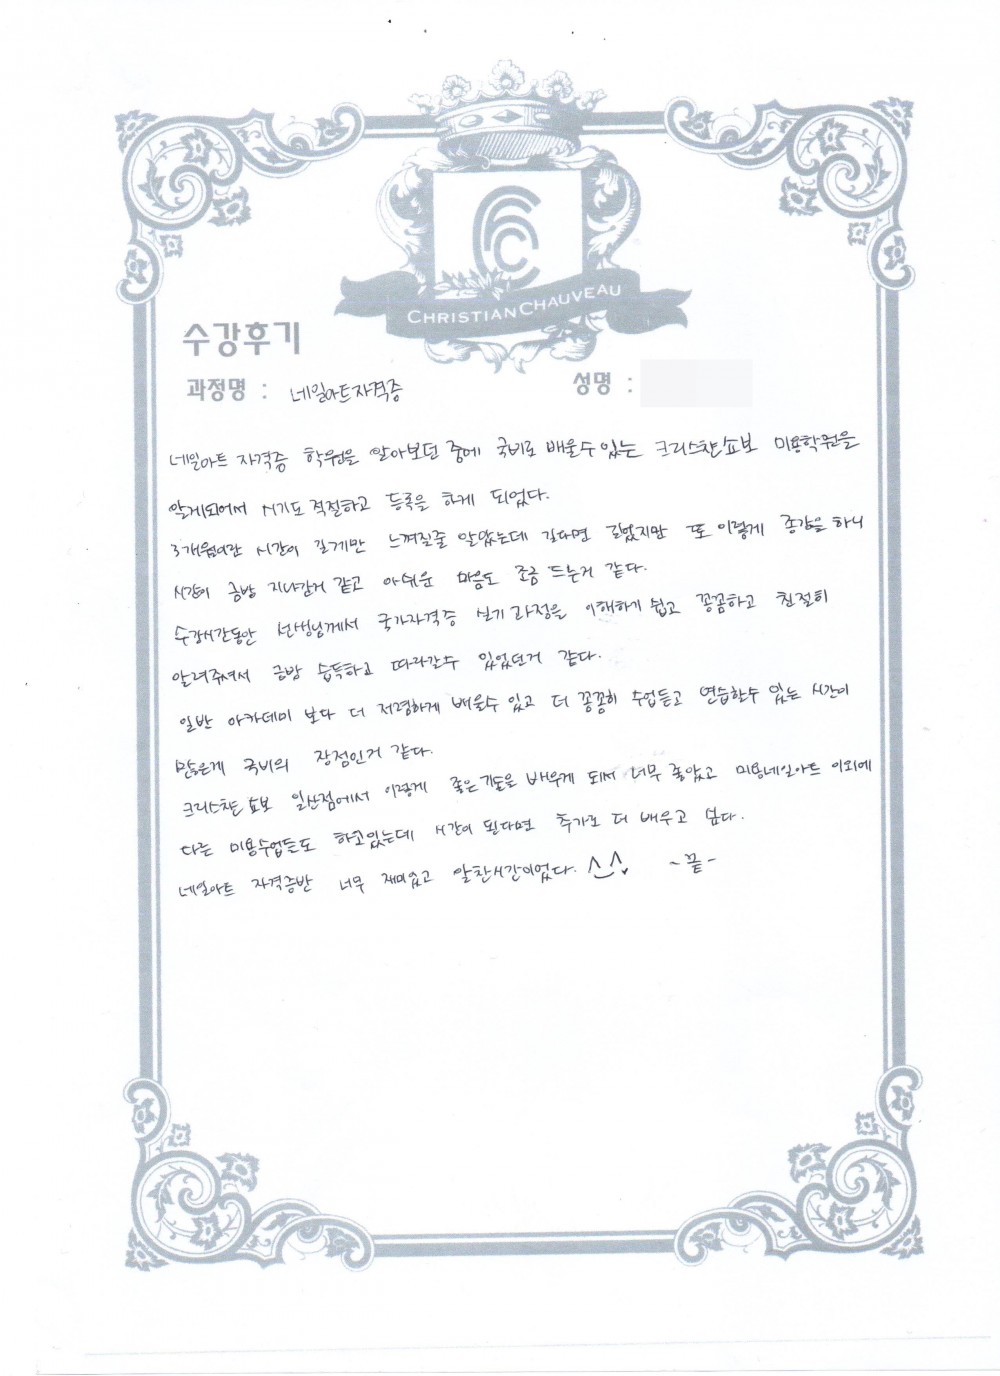 CHRISTIAN CHAUVEAU
수강후기
과정명 : 네일아트자격증
성명 :
네일아트 자격증 학원을 알아보던 중에 국비로 배울수있는 크리스챤쇼보 미용학원을
알게되어서 시기도 적절하고 등록을 하게 되었다.
3개월이란 시간이 길게만 느껴질줄 알았는데 길다면 길었지만 또 이렇게 종강을 하니
시간이 금방 지나간거 같고 아쉬운 마음도 조금 드는거 같다.
수강시간동안 선생님께서 국가자격증 실기과정을 이해하기 쉽고 꼼꼼하고 친절히
알려주셔서 금방 습득하고 따라갈수 있었던거 같다.
일반 아카데미 보다 더 저렴하게 배울수 있고 더 꼼꼼히 수업듣고 연습할수 있는 시간이
많은게 국비의 장점인거 같다.
크리스챤쇼보 일산점에서 이렇게 좋은 기술을 배우게 되서 너무 좋았고 미용네일아트 이외에
다른 미용수업들도 하고있는데 시간이 된다면 추가로 더 배우고 싶다.
네일아트 자격증반 너무 재미있고 알찬시간이었다. ^_^ ~끝~